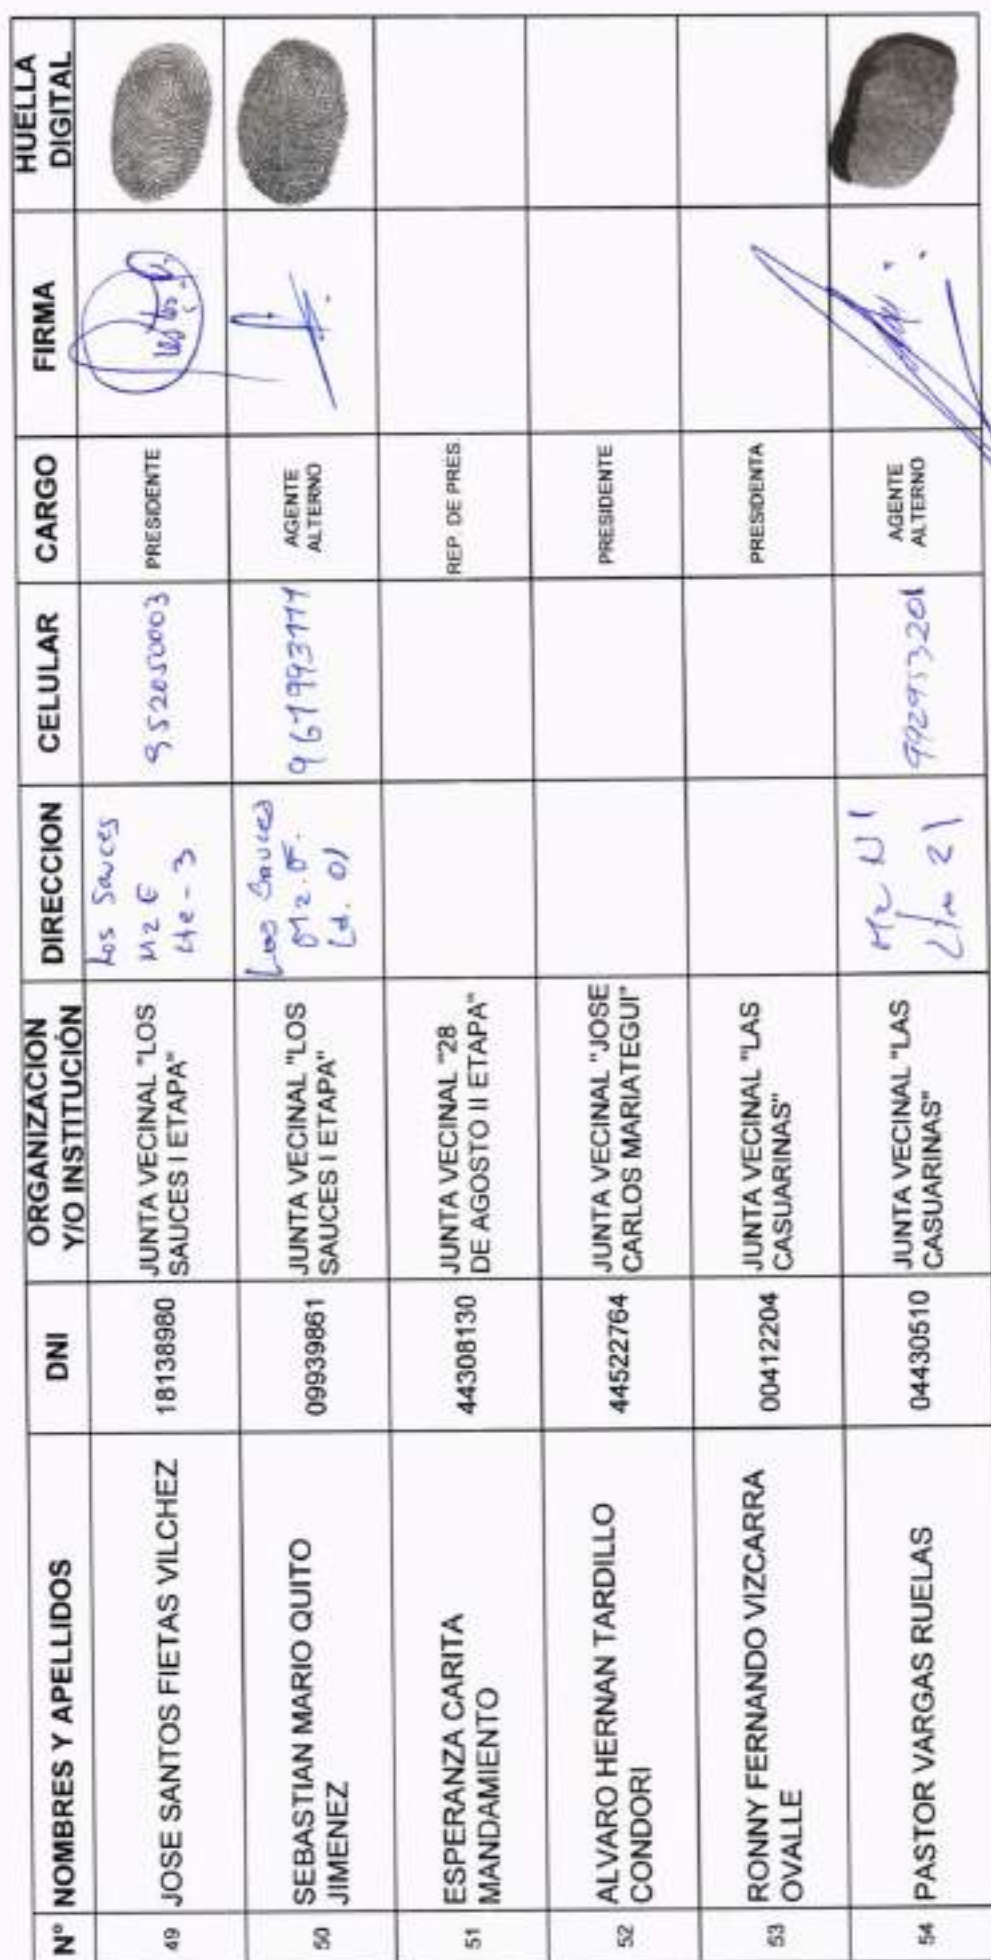 Nº NOMBRES Y APELLIDOS DNI ORGANIZACION Y/O INSTITUCIÓN DIRECCION CELULAR CARGO FIRMA HUELLA DIGITAL
49 JOSE SANTOS FIETAS VILCHEZ 18138980 JUNTA VECINAL "LOS SAUCES I ETAPA" Los Sauces Mz E Lte - 3 952050003 PRESIDENTE
50 SEBASTIAN MARIO QUITO JIMENEZ 09939861 JUNTA VECINAL "LOS SAUCES I ETAPA" Los Sauces Mz. F. Lt. 01 AGENTE ALTERNO
51 ESPERANZA CARITA MANDAMIENTO 44308130 JUNTA VECINAL "28 DE AGOSTO II ETAPA" REP. DE PRES.
52 ALVARO HERNAN TARDILLO CONDORI 44522764 JUNTA VECINAL "JOSE CARLOS MARIATEGUI" PRESIDENTE
53 RONNY FERNANDO VIZCARRA OVALLE 00412204 JUNTA VECINAL "LAS CASUARINAS" PRESIDENTA
54 PASTOR VARGAS RUELAS 04430510 JUNTA VECINAL "LAS CASUARINAS" Mz N1 21 992953201 AGENTE ALTERNO